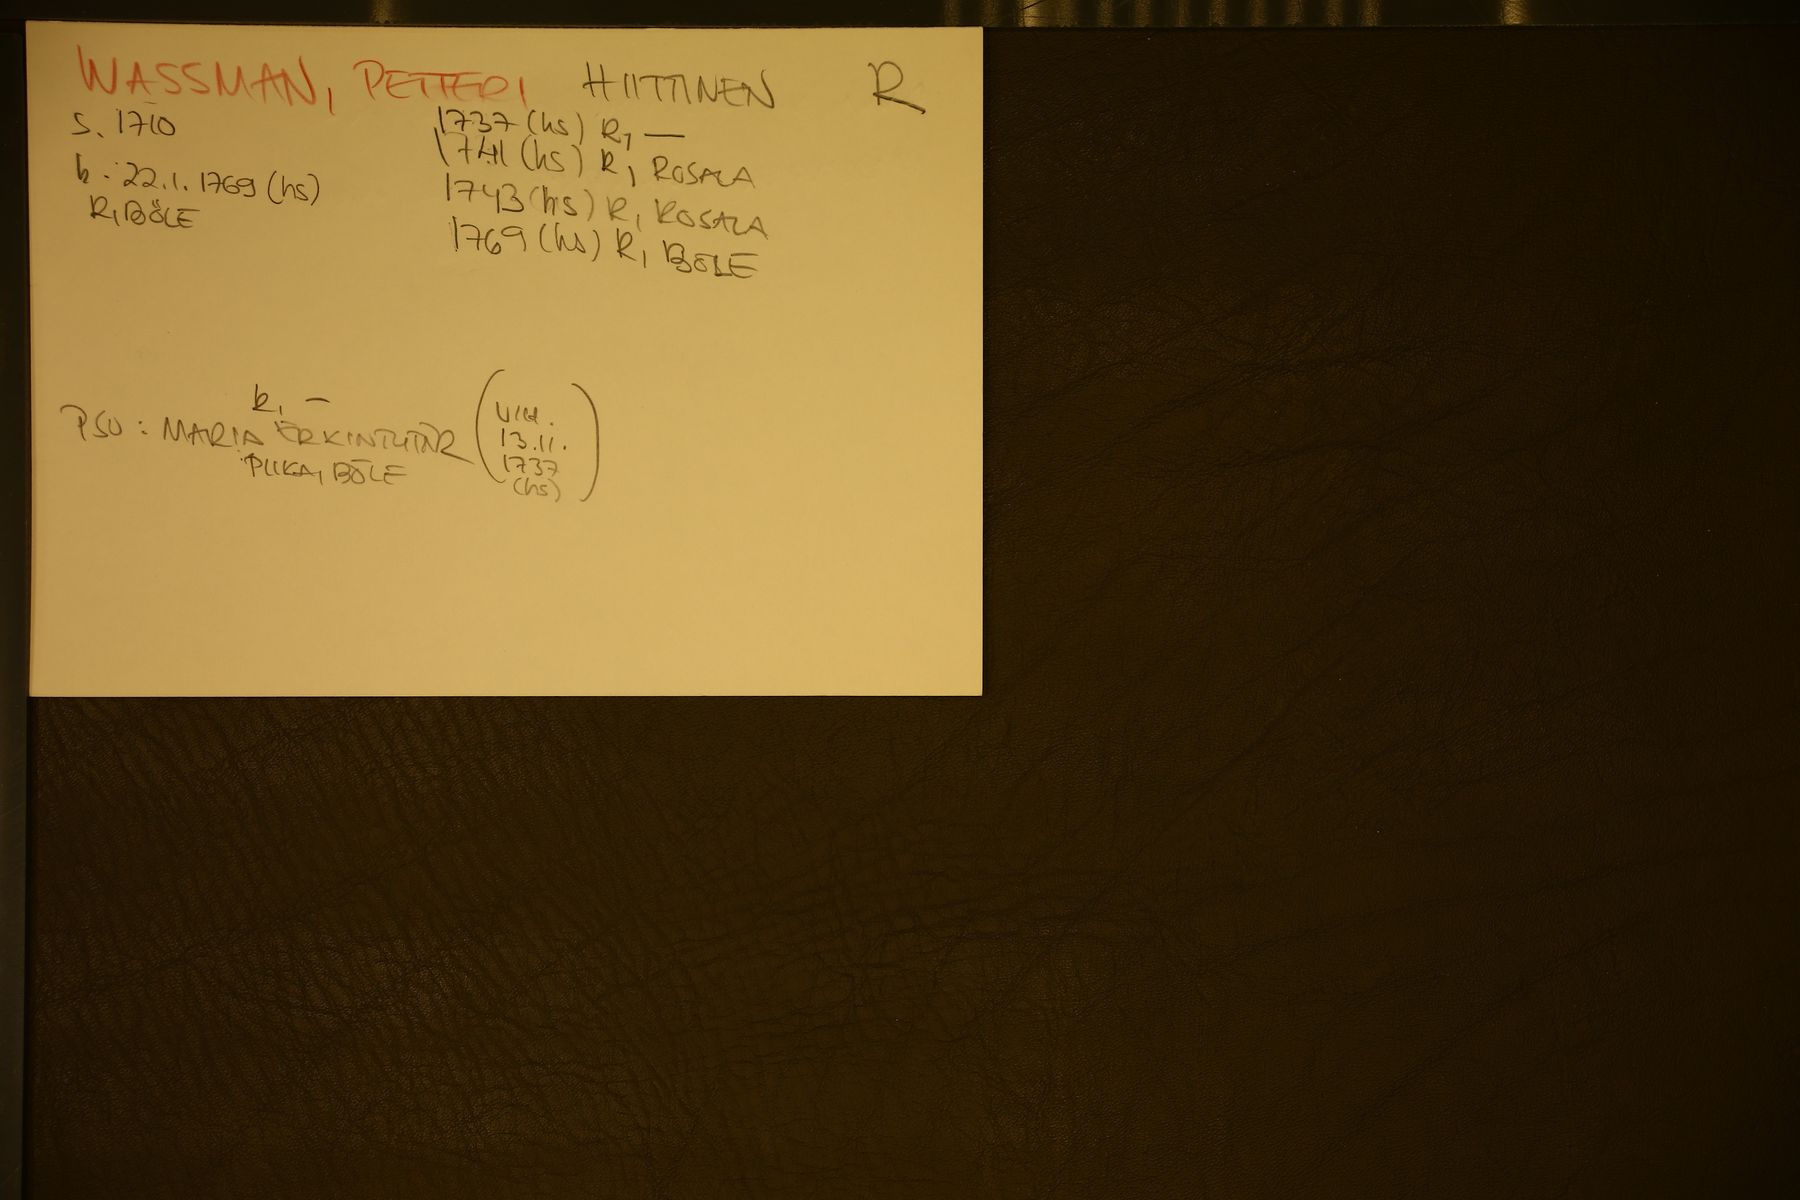 WASSMAN, PETTERI HIITTINEN R
S. 1710
k. 22.1.1769 (hs)
R, BÖLE
1737 (hs) R, —
1741 (hs) R, ROSALA
1743 (hs) R, ROSALA
1769 (hs) R, BÖLE
R, —
PSO: MARIA ERKINTYTÄR
PIIKA, BÖLE
(VIH.
13.11.
1737
(hs))